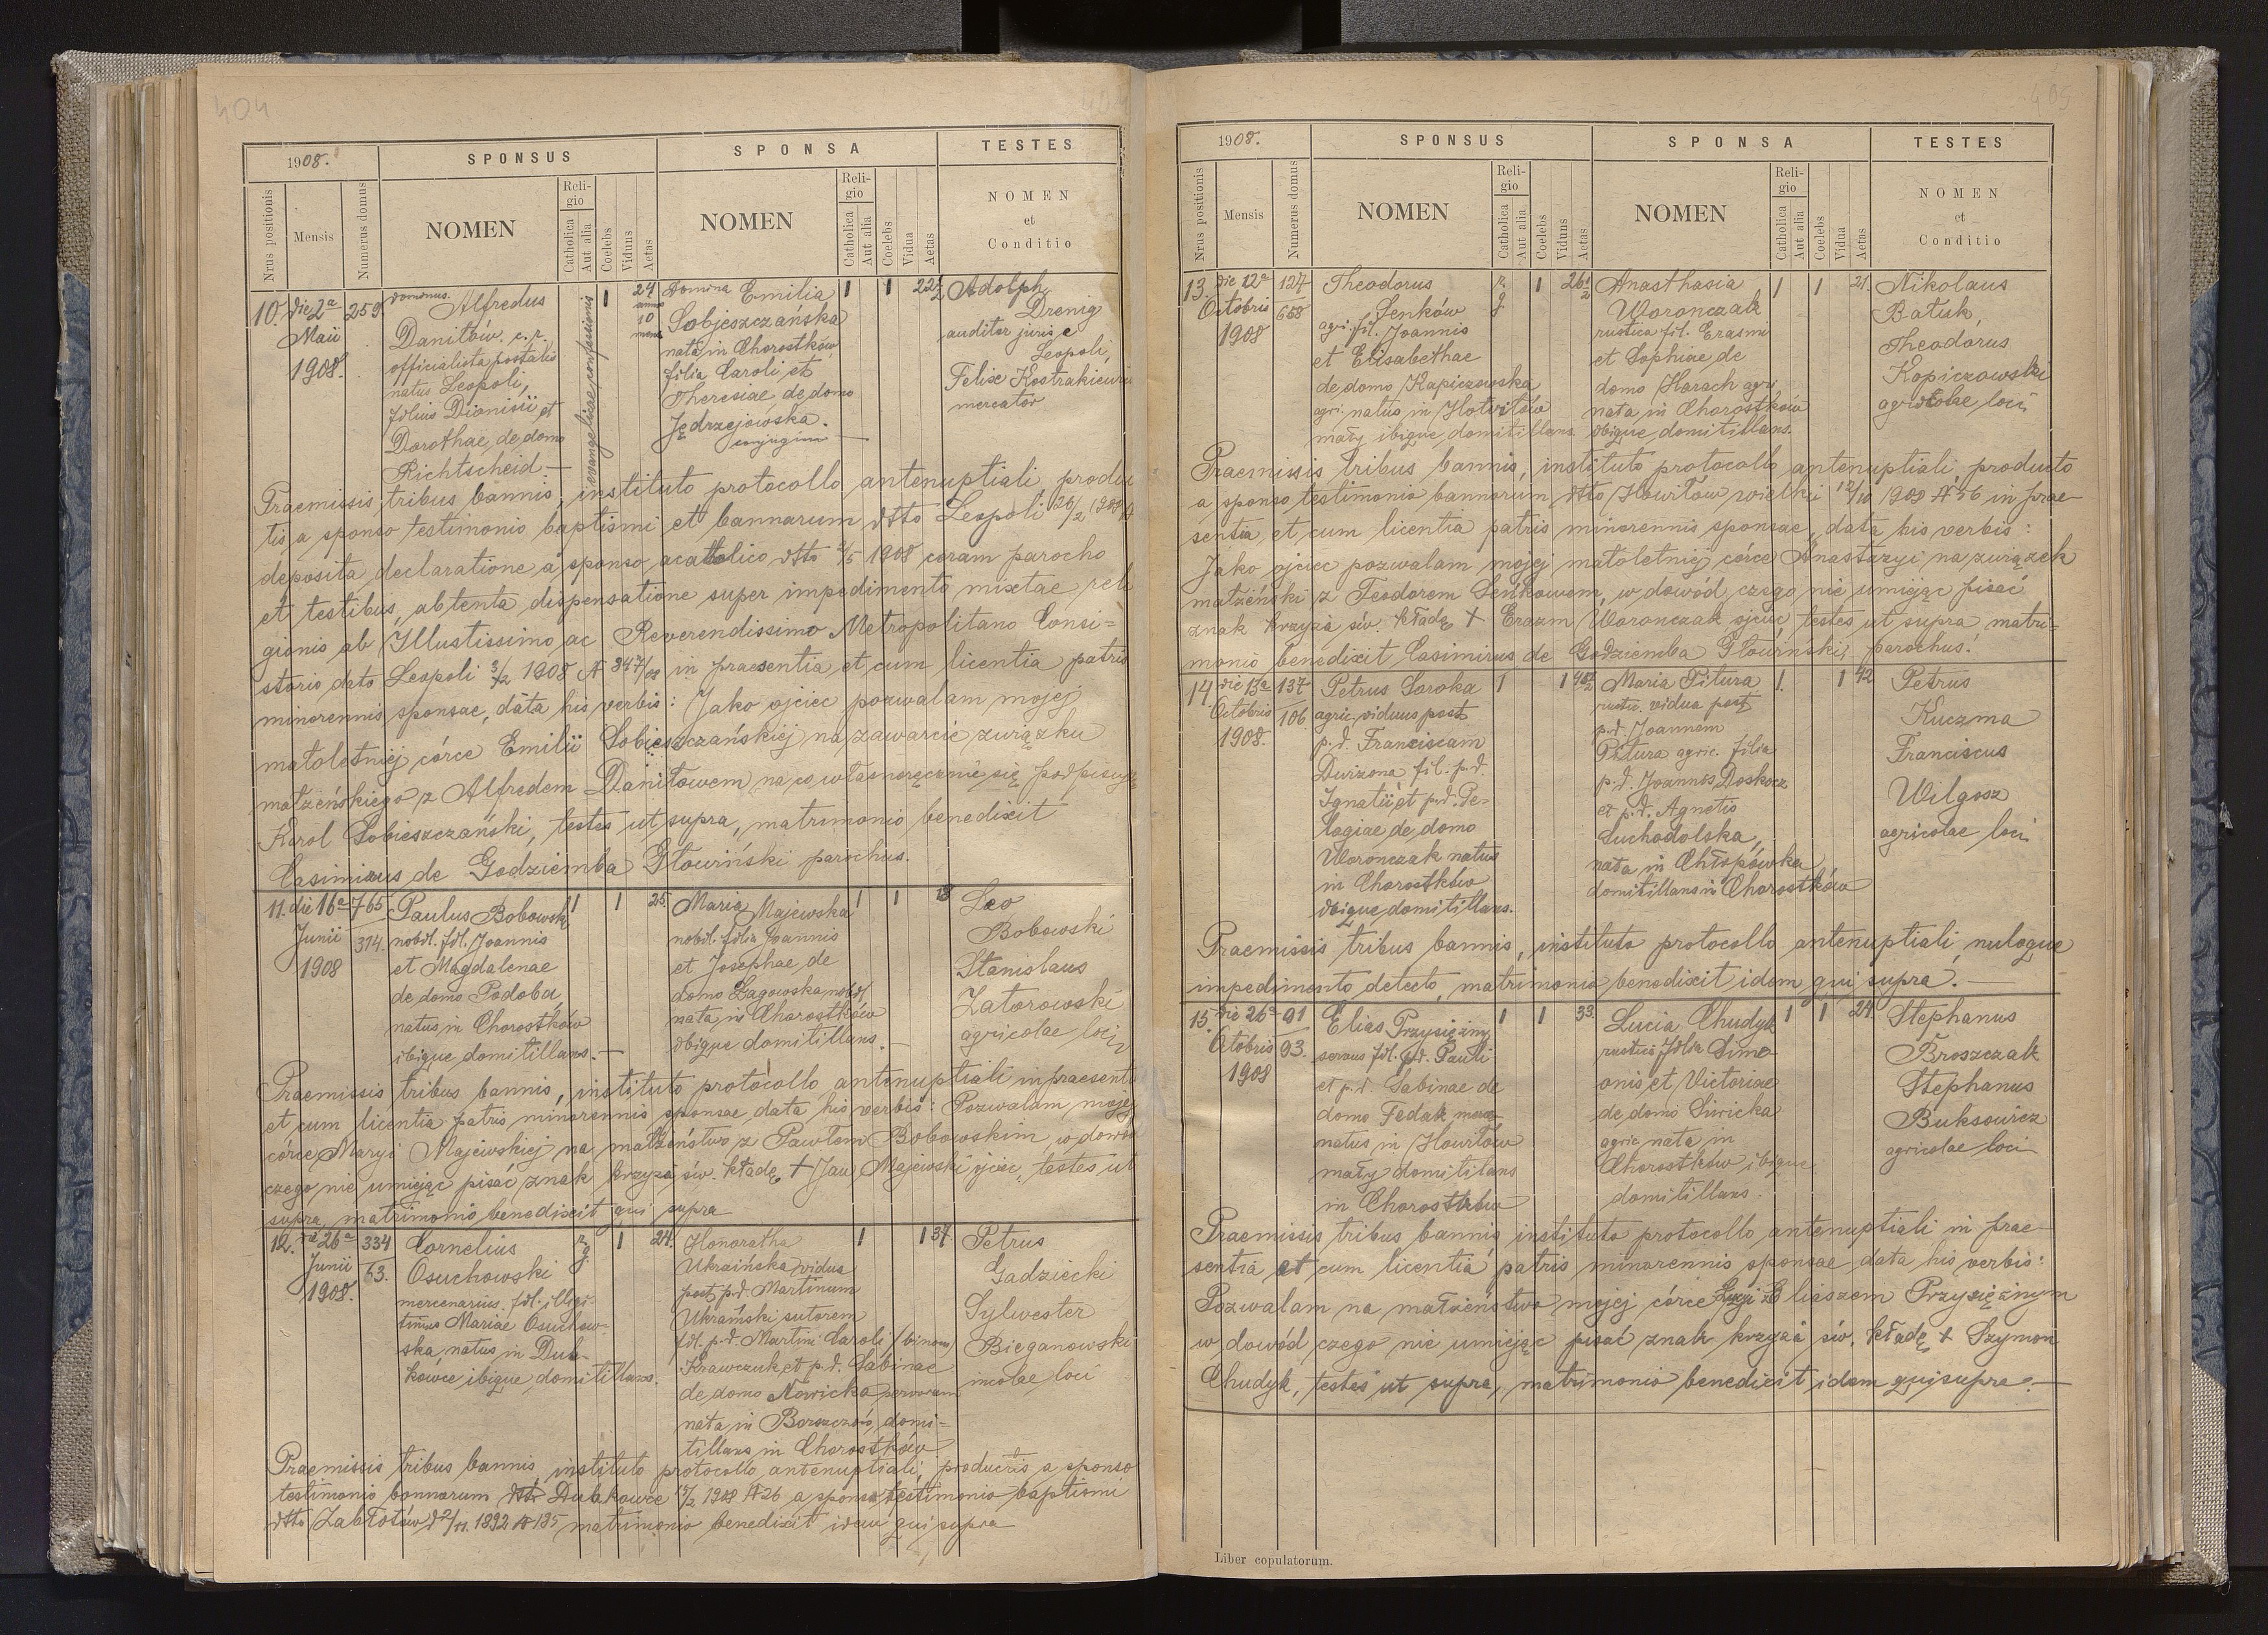 404
1908.
SPONSUS
SPONSA
TESTES
Nrus positionis
Mensis
Numerus domus
NOMEN
Religio
Catholica
Aut alia
Coelebs
Viduus
Aetas
NOMEN
Religio
Catholica
Aut alia
Coelebs
Vidua
Aetas
NOMEN
et
Conditio
10. die 2a Maii 1908. 259
dominus. Alfredus
Daniłów. c. r.
officialista postalis
natus Leopoli,
filius Dionisii et
Dorothae, de domo
Richtscheid —
evangelicae confessionis
1
24
10
Domina Emilia
Sobieszczańska
nata in Chorostków
filia Caroli et
Theresiae de domo
Jędrzejowska.
conjugum —
1 1 22 1/2
Adolph
Drenig
auditor juris e
Leopoli,
Felix
mercator
Praemissis tribus bannis, instituto protocollo antenuptiali, produc
tis a sponso testimonio baptismi et bannorum dtto Leopoli 26/2 1908
deposita declaratione a sponso acattolico dtto 2/5 1908 coram parocho
et testibus, obtenta dispensatione super impedimento mixtae reli
gionis ab Illustissimo ac Reverendissimo Metropolitano Consi=
storio dato Leopoli 3/2 1908 N 347/08 in praesentia et cum licentia patris
minorennis sponsae, data his verbis: Jako ojciec pozwalam mojej
małoletniej córce Emilii Sobieszczańskiej na zawarcie związku
małżeńskiego z Alfredem Daniłowem na co własnoręcznie się podpisuję
Karol Sobieszczański, testes ut supra, matrimonio benedixit
Casimirus de Godziemba Głowiński parochus.
11. die 16a Junii 1908 765 314.
Paulus Bobowski
nobil. fil. Joannis
et Magdalenae
de domo Podoba,
natus in Chorostków
ibique domitillans. —
1 1 25.
Maria Majewska
nobil. filia Joannis
et Josephae, de
domo Łagowska nobil
nata in Chorostków
ibique domitillans. —
1 1 18
Leo
Bobowski
Stanislaus
Zatorowski
agricolae loci
Praemissis tribus bannis, instituto protocollo antenuptiali in praesentia
et cum licentia patris minorennis sponsae, data his verbis: Pozwalam mojej
córce Maryi Majewskiej na małżeństwo z Pawłem Bobowskim, w dowód
czego nie umiejąc pisać znak krzyża św. kładę + Jan Majewski ojciec, testes ut
supra, matrimonio benedixit qui supra
12. die 26a Junii 1908. 334 63.
Cornelius
Osuchowski
mercenarius. fil. illegi-
timus Mariae Osuchow-
ska natus in Dub-
kowce ibique domitillans.
r. g. 1 24.
Honoratha
Ukraińska vidua
post p.d. Martinum
Ukraiński sutorem
fil. p.d. Martini Caroli (binom)
Krawczuk et p.d. Sabinae
de domo Nowicka
nata in Borszczów, domi=
tillans in Chorostków
1 1 37.
Petrus
Gadziecki
Sylwester
Bieganowski
incolae loci
Praemissis tribus bannis, instituto protocollo antenuptiali, productis a sponso
testimonio bannorum dtto Dubkowce 1908 N 26 a sponsa testimonio baptismi
dtto Zabłotów 1892 N 185 matrimonio benedixit idem qui supra
405
1908.
SPONSUS
SPONSA
TESTES
Nrus positionis
Mensis
Numerus domus
NOMEN
Religio
Catholica
Aut alia
Coelebs
Viduus
Aetas
NOMEN
Religio
Catholica
Aut alia
Coelebs
Vidua
Aetas
NOMEN
et
Conditio
13. die 12a Octobris 1908 127 658
Theodorus
Senków
agri. fil. Joannis
et Elisabethae
de domo Kapiczowska
agri. natus in
mały ibique domitillans.
r. g. 1 26 1/2
Anasthasia
Woronczak
rustica fil. Erasmi
et Sophiae de
domo Harach agri.
nata in Chorostków
ibique domitillans.
1 1 21.
Nikolaus
Batuk,
Theodorus
Kopiczowski
agricolae loci
Praemissis tribus bannis, instituto protocollo antenuptiali, producto
a sponso testimonio bannorum dtto Howiłów wielki 12/10 1908 N 56 in prae-
sentia, et cum licentia patris minorennis sponsae, data his verbis:
Jako ojciec pozwalam mojej małoletniej córce Anastazyi na związek
małżeński z Teodorem Senkowem, w dowód czego nie umiejąc pisać
znak krzyża św. kładę + Erazm Woronczak ojciec, testes ut supra matri-
monio benedixit Casimirus de Godziemba Głowiński parochus.
14. die 13a Octobris 1908. 137 106
Petrus Soroka
agric. viduus post
p.d. Franciscam
Durizona fil. p.d.
Ignatii et p.d. Pe-
lagiae de domo
Woronczak natus
in Chorostków
ibique domitillans.
1 1 40 1/2
Maria Pitura
rustic. vidua post
p.d. Joannem
Pitura agric. filia
p.d. Joannis Doskocz
et p.d. Agnetis
Suchodolska,
nata in Chłopówka
domitillans in Chorostków
1. 1 42
Petrus
Kuczma
Franciscus
Wilgosz
agricolae loci
Praemissis tribus bannis, instituto protocollo antenuptiali, nuloque
impedimento detecto, matrimonio benedixit idem qui supra. —
15. die 26a Octobris 1908 91 93.
Elias Przysiężny
servus fil. p.d. Pauli
et p.d. Sabinae de
domo Fedak merce-
natus in Howiłów
mały domitilans
in Chorostków
1 1 33.
Lucia Chudyk
rustica filia Sime-
onis et Victoriae
de domo Siwicka
agric nata in
Chorostków ibique
domitillans.
1 1 24.
Stephanus
Broszczak
Stephanus
Buksowicz
agricolae loci
Praemissis tribus bannis instituto protocollo antenuptiali in prae-
sentia et cum licentia patris minorennis sponsae data his verbis:
Pozwalam na małżeństwo mojej córce Łucyi z Eliaszem Przysiężnym
w dowód czego nie umiejąc pisać znak krzyża św. kładę + Szymon
Chudyk, testes ut supra, matrimonio benedixit idem qui supra. —
Liber copulatorum.